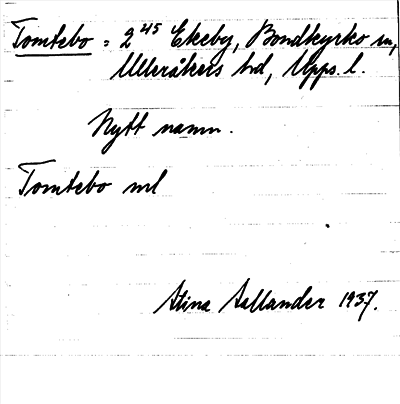 Tomtebo = 2⁴⁵ Ekeby, Bondkyrko sn,
Ulleråkers hd, Upps. l.
Nytt namn.
Tomtebo ml
Stina Aallander 1937.